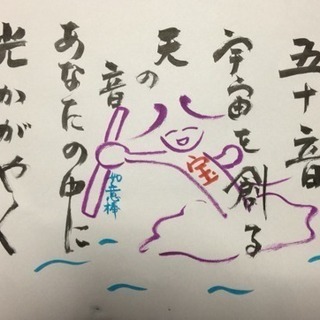 五十音
宇宙を創る
天の
音
あなたの中に
光かがやく
宝
如意棒